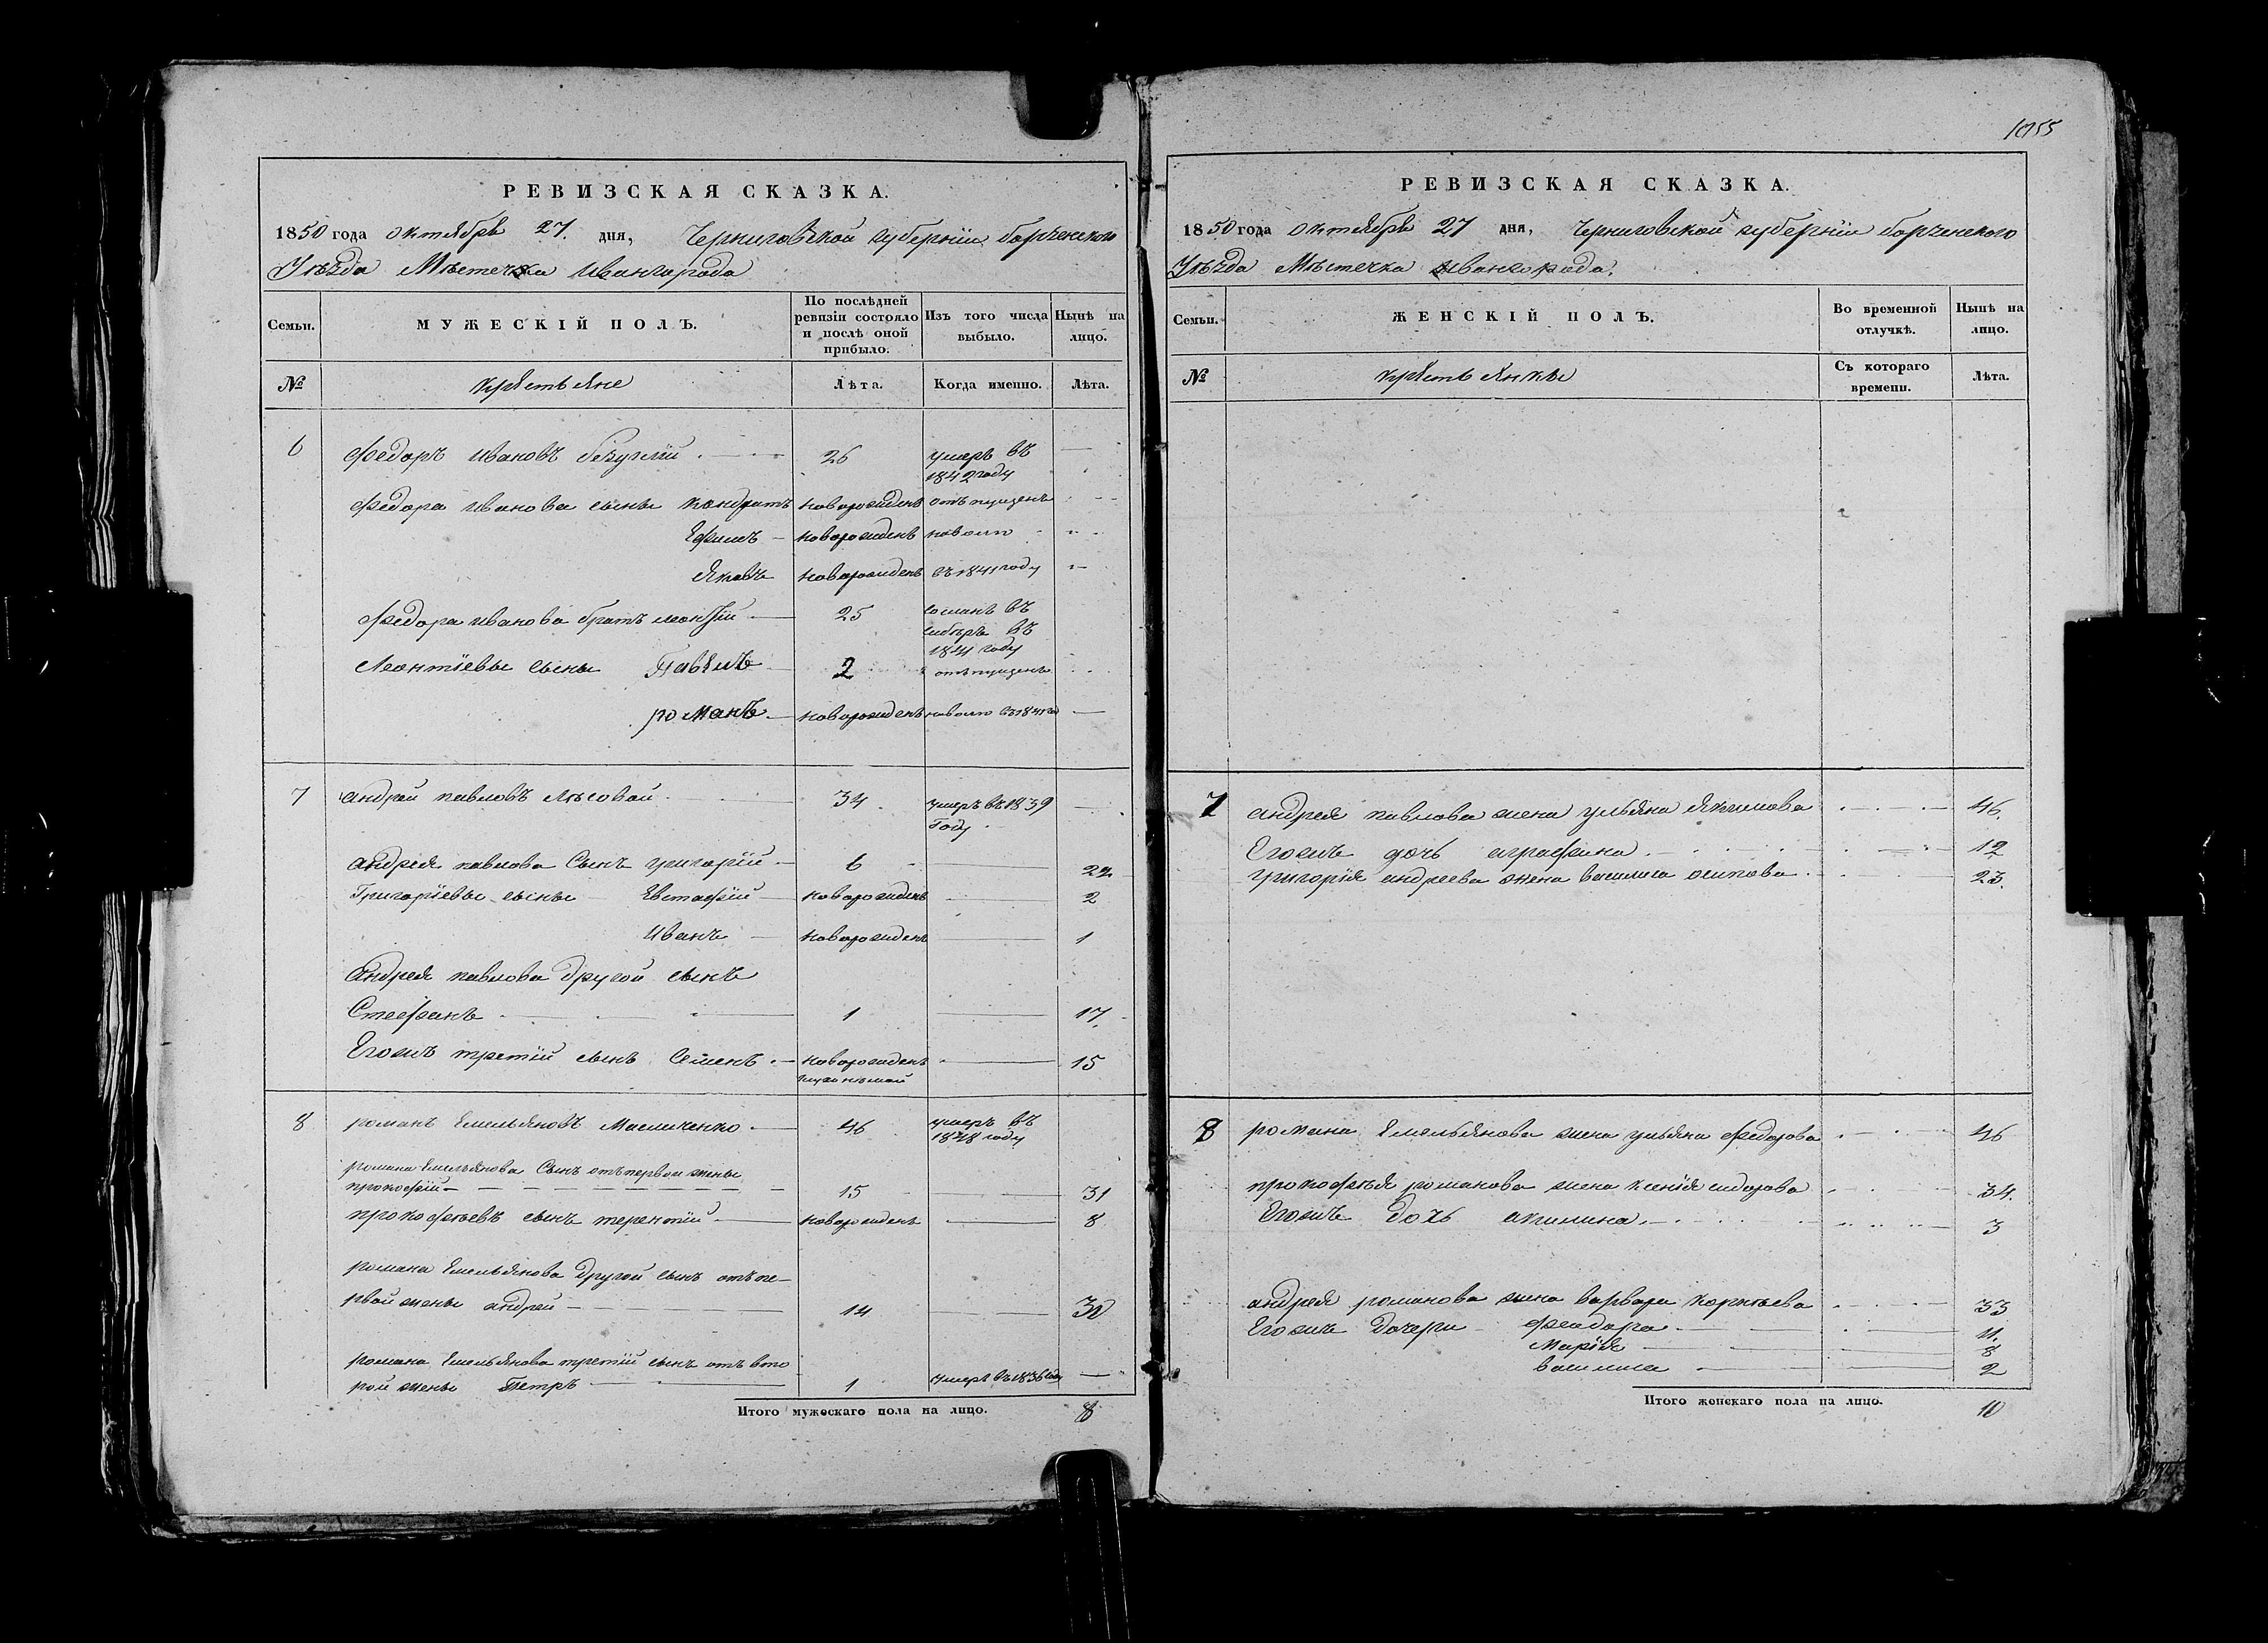 1055
РЕВИЗСКАЯ СКАЗКА.
1850 года октября 27. дня, Черниговской губерніи борзенского
Уѣзда Мѣстечка Ивангорода
Семьи. МУЖЕСКІЙ ПОЛЪ. По послѣдней ревизіи состояло и послѣ оной прибыло. Изъ того числа выбыло. Нынѣ на лицо.
№ крестьяне Лѣта. Когда именно. Лѣта.
6 Федоръ ивановъ 26 умеръ въ
1842 году
Федора иванова сыны кондратъ новорожденъ отъпущенъ
Ефимъ новорожденъ наволю
Яковъ новорожденъ въ 1841 году
Федора иванова братъ леонтій 25 сосланъ въ
сибѣрь въ
1841 году
Леонтіевы сыны Павелъ 2 отъпущенъ
романъ новорожденъ наволю въ 1841 го
7 андрей павловъ Лѣсовой 34 умеръ въ 1839
Году
андрея павлова Сынъ григорій 6 22
Григоріевы сыны Евстафій новорожденъ 2
Иванъ новорожденъ 1
Андрея павлова другой сынъ
Стефанъ 1 17
Егожъ третій сынъ Семенъ новорожденъ 15
глухонѣмой
8 романъ Емельяновъ Масличенко 46 умеръ въ
1848 году
романа Емельянова Сынъ отъпервой жены
прокофій 15 31
прокофьевъ сынъ терентій новорожденъ 8
романа Емельянова другой сынъ отъпе-
рвой жены андрей 14 30
романа Емельянова третій сынъ отъ вто
рой жены Петръ 1 умеръ въ 1836 году
Итого мужескаго пола на лицо. 8
РЕВИЗСКАЯ СКАЗКА.
1850 года октября 27 дня, Черниговской губерніи борзенского
Уѣзда Мѣстечка ивангорода.
Семьи. ЖЕНСКІЙ ПОЛЪ. Во временной отлучкѣ. Нынѣ на лицо.
№ крестьянки Съ котораго времени. Лѣта.
7 андрея павлова жена ульяна Якимова 46.
Егожъ дочь аграфина 12
григорія андреева жена василиса осипова 23.
8 романа Емельянова жена ульяна Федорова 46
прокофья романова жена ксенія сидорова 34.
Егожъ дочь акилина 3
андрея романова жена варвара 33
Егожъ дочери феодора 11.
Марія 8
василиса 2
Итого женскаго пола на лицо. 10